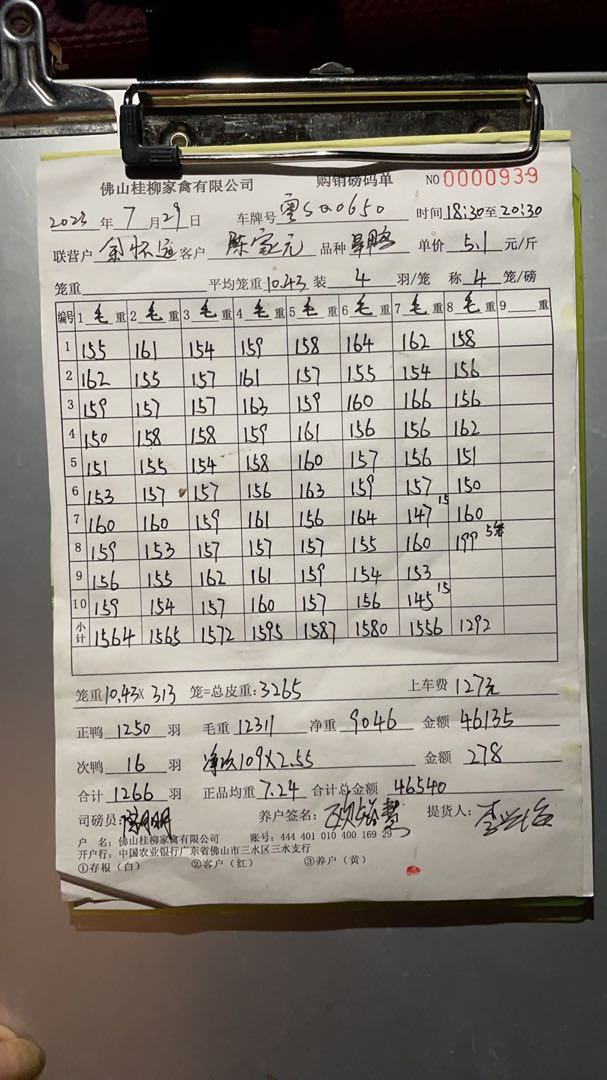 佛山桂柳家禽有限公司 购销磅码单 NO 0000939
2023 年 7 月 29 日 车牌号 粤SQ0650 时间 18:30 至 20:30
联营户 余怀运 客户 陈家元 品种 单价 5.1 元/斤
笼重 平均笼重 10.43 装 4 羽/笼 称 4 笼/磅
编号 1 毛 重 2 毛 重 3 毛 重 4 毛 重 5 毛 重 6 毛 重 7 毛 重 8 毛 重 9 重
1 155 161 154 159 158 164 162 158
2 162 155 157 161 157 155 154 156
3 159 157 157 163 159 160 166 156
4 150 158 158 159 161 156 156 162
5 151 155 154 158 160 157 156 151
6 153 157 157 156 163 159 157 150
7 160 160 159 161 156 164 147 15 160
8 159 153 157 157 157 155 160 199 5笼
9 156 155 162 161 159 154 153
10 159 154 157 160 157 156 145 15
小计 1564 1565 1572 1595 1587 1580 1556 1292
笼重 10.43 × 313 笼=总皮重: 3265 上车费 127元
正鸭 1250 羽 毛重 12311 净重 9046 金额 46135
次鸭 16 羽 净次109×2.55 金额 278
合计 1266 羽 正品均重 7.24 合计总金额 46540
司磅员: 养户签名: 提货人:
户 名: 佛山桂柳家禽有限公司 账号: 444 401 010 400 169 29
开户行: 中国农业银行广东省佛山市三水区三水支行
①存根（白） ②客户（红） ③养户（黄）